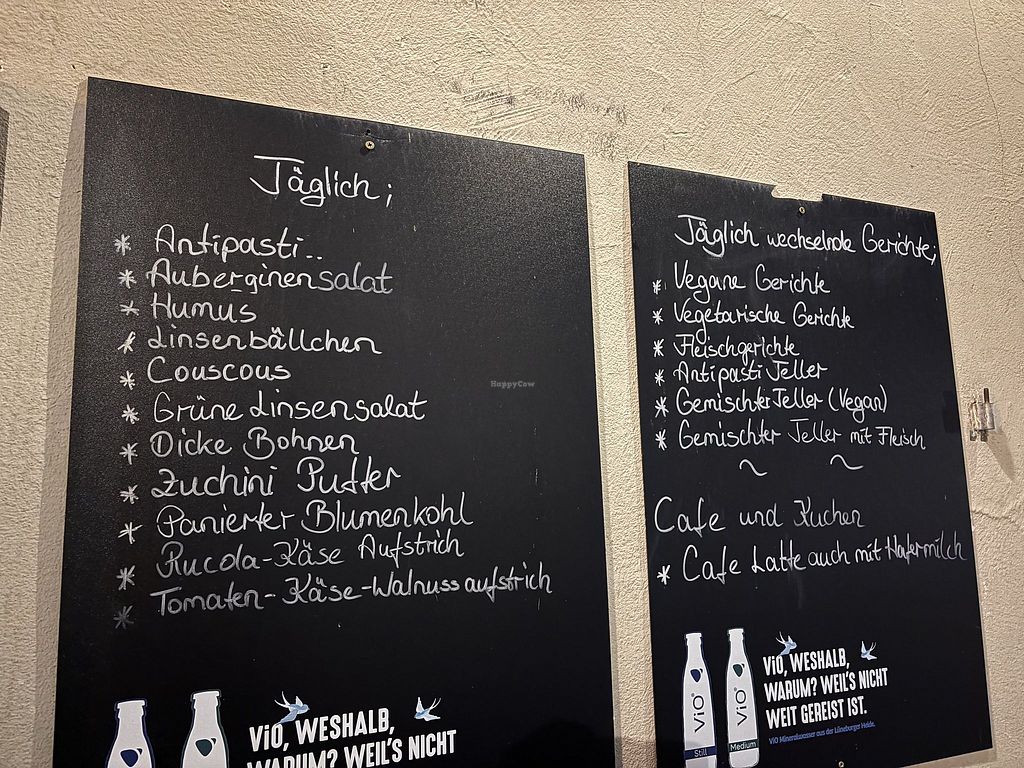 Täglich;
* Antipasti..
* Auberginensalat
* Humus
* Linsenbällchen
* Couscous
* Grüne Linsensalat
* Dicke Bohnen
* Zuchini Puffer
* Panierter Blumenkohl
* Rucola-Käse Aufstrich
* Tomaten-Käse-Walnussaufstrich
ViO, WESHALB,
WARUM? WEIL'S NICHT
Täglich wechselnde Gerichte;
* Vegane Gerichte
* Vegetarische Gerichte
* Fleischgerichte
* Antipasti Teller
* Gemischter Teller (Vegan)
* Gemischter Teller mit Fleisch
~ ~
Cafe und Kuchen
* Cafe Latte auch mit Hafermilch
ViO
Still
ViO
Medium
ViO, WESHALB,
WARUM? WEIL'S NICHT
WEIT GEREIST IST.
ViO Mineralwasser aus der Lüneburger Heide.
HappyCow